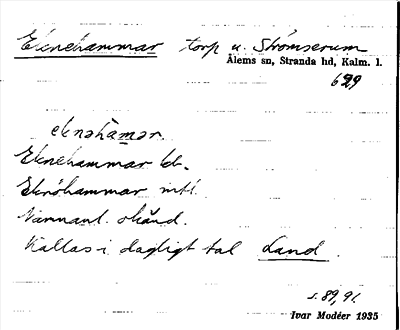 Eknehammar torp u. Strömserum
Ålems sn, Stranda hd, Kalm. l.
629
eknəhàmar.
Eknehammar kb.
Eknöhammar mtl.
Namnanl. okänd.
Kallas i dagligt tal Land.
s. 89, 91.
Ivar Modéer 1935